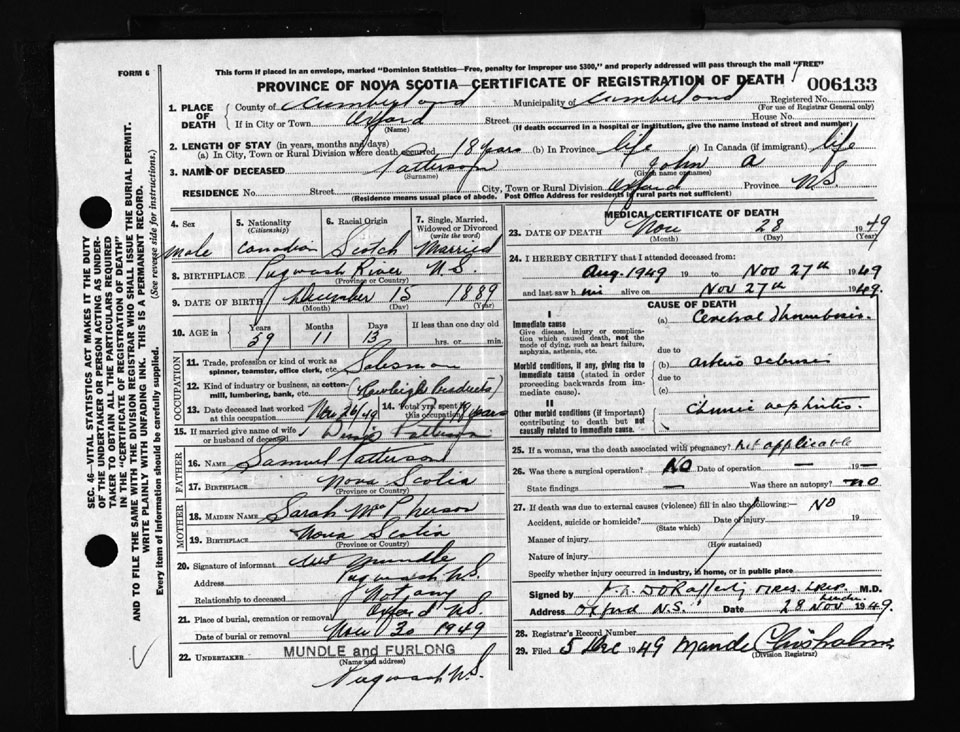 FORM 6
This form if placed in an envelope, marked "Dominion Statistics—Free, penalty for improper use $300," and properly addressed will pass through the mail "FREE"
PROVINCE OF NOVA SCOTIA—CERTIFICATE OF REGISTRATION OF DEATH
006133
1. PLACE OF DEATH County of Cumberland Municipality of Cumberland Registered No. (For use of Registrar General only)
If in City or Town Oxford (Name) Street House No.
(If death occurred in a hospital or institution, give the name instead of street and number)
2. LENGTH OF STAY (in years, months and days)
(a) In City, Town or Rural Division where death occurred 18 years (b) In Province life (c) In Canada (if immigrant) life
3. NAME OF DECEASED Patterson (Surname) John A (Given name or names)
RESIDENCE No. Street City, Town or Rural Division Oxford Province N.S.
(Residence means usual place of abode. Post Office Address for residents in rural parts not sufficient)
4. Sex Male
5. Nationality (Citizenship) Canadian
6. Racial Origin Scotch
7. Single, Married, Widowed or Divorced (write the word) Married
8. BIRTHPLACE Pugwash River N.S.
9. DATE OF BIRTH December (Month) 15 (Day) 1889 (Year)
10. AGE in Years 59 Months 11 Days 13 If less than one day old hrs. or min.
OCCUPATION
11. Trade, profession or kind of work as spinner, teamster, office clerk, etc. Salesman
12. Kind of industry or business, as cotton-mill, lumbering, bank, etc. (Rawleigh Products)
13. Date deceased last worked at this occupation Nov 26/49 14. Total yrs. spent in this occupation 19 years
15. If married give name of wife or husband of deceased Patterson
FATHER
16. NAME Samuel Patterson
17. BIRTHPLACE Nova Scotia (Province or Country)
MOTHER
18. MAIDEN NAME Sarah McPherson
19. BIRTHPLACE Nova Scotia (Province or Country)
20. Signature of informant Mundle
Address Pugwash N.S.
Relationship to deceased Not any
21. Place of burial, cremation or removal Oxford N.S.
Date of burial or removal Nov 30 1949
22. UNDERTAKER MUNDLE and FURLONG
(Name and address)
Pugwash N.S.
MEDICAL CERTIFICATE OF DEATH
23. DATE OF DEATH Nov (Month) 28 (Day) 1949 (Year)
24. I HEREBY CERTIFY that I attended deceased from
Aug. 1949 19 to Nov 27th 1949
and last saw him alive on Nov 27th 1949.
CAUSE OF DEATH
I
Immediate cause
Give disease, injury or complication which caused death, not the mode of dying, such as heart failure, asphyxia, asthenia, etc.
(a) Cerebral Thrombosis
due to
Morbid conditions, if any, giving rise to immediate cause (stated in order proceeding backwards from immediate cause).
(b) arterio sclerosis
due to
(c)
II
Other morbid conditions (if important) contributing to death but not causally related to immediate cause.
Chronic nephritis.
25. If a woman, was the death associated with pregnancy? Not applicable
26. Was there a surgical operation? NO Date of operation — 19 —
State findings — Was there an autopsy? no
27. If death was due to external causes (violence) fill in also the following:— NO
Accident, suicide or homicide? (State which) Date of injury 19
Manner of injury (How sustained)
Nature of injury
Specify whether injury occurred in industry, in home, or in public place
Signed by M.D.
Address Oxford N.S. Date 28 Nov 1949.
28. Registrar's Record Number
29. Filed 5 Dec 1949 Chisholm
(Division Registrar)
SEC. 46—VITAL STATISTICS ACT MAKES IT THE DUTY OF THE UNDERTAKER OR PERSON ACTING AS UNDERTAKER TO OBTAIN ALL THE PARTICULARS REQUIRED IN THE "CERTIFICATE OF REGISTRATION OF DEATH" AND TO FILE THE SAME WITH THE DIVISION REGISTRAR WHO SHALL ISSUE THE BURIAL PERMIT.
WRITE PLAINLY WITH UNFADING INK. THIS IS A PERMANENT RECORD.
Every item of information should be carefully supplied. (See reverse side for instructions.)